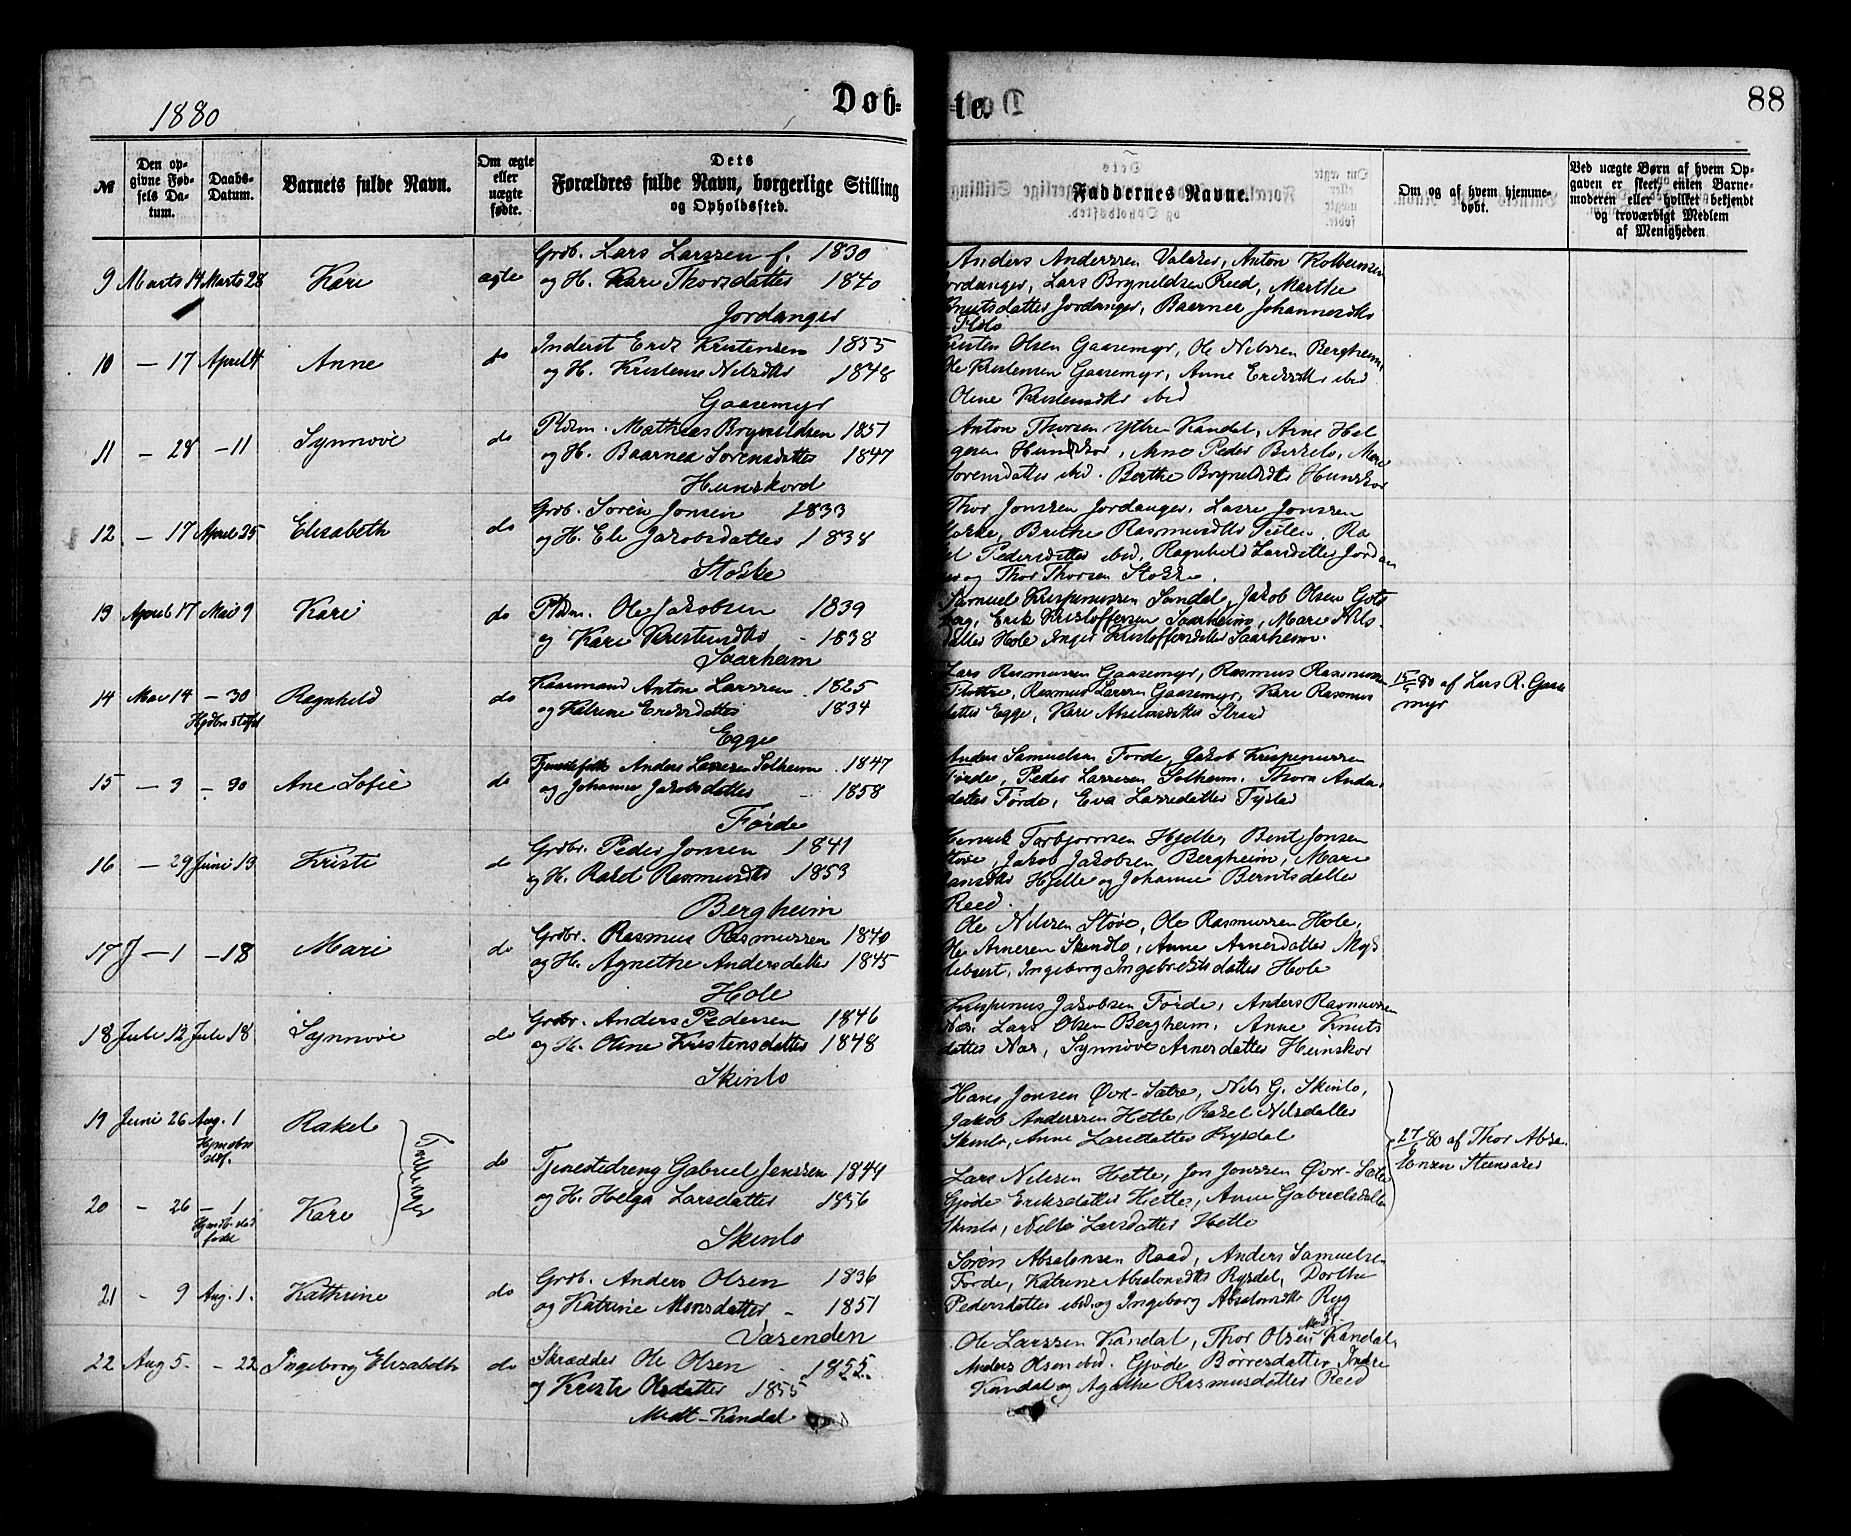 1880
Døb=
te.
88
№
Den op-
givne Fød-
sels Da-
tum.
Daabs-
Datum.
Barnets fulde Navn.
Om ægte
eller
uægte
fødte.
Dets
Forældres fulde Navn, borgerlige Stilling
og Opholdssted.
Faddernes Navne.
Om og af hvem hjemme-
døbt.
Ved uægte Børn af hvem Op-
gaven er skeet, enten Barne-
moderen eller hvilket bekjendt
og troværdigt Medlem
af Menigheden
9 Marts 14 Marts 28 Kari ægte
Grdb. Lars Larssen f. 1830
og H. Kari Thorsdatter 1840
Jordanger
Anders Anderssen Anton
Lars Bryneldsen Reed, Marthe
Jordanger,
10 — 17 April 4 Anne do
Inderst Erik Kristensen 1855
og H. Kristense Nelsdtr 1848
Gaasemyr
Olsen Gaasemyr, Ole Nilssen Bergheim,
Kristensen Gaasemyr, Anne ibid
Oline Kristensdtr ibid
11 — 28 — 11 Synnøve do
Pldsm. Mathias Bryneldsen 1851
og H. Baarnea Sørensdatter 1847
Hunskord
Anton Thorsen Ytre Kandal, Arne Hel
Sørensdatter ibid. Berthe Bryneldsdtr Hunskor
12 — 17 April 25 Elisabeth do
Grdb. Søren Jonsen 1833
og H. Eli Jakobsdatter 1838
Støske
Thor Jonssen Jordanger, Lasse Jonssen
Rasmusdtr
Pedersdatter ibid. Ragnhild Larsdatter Jordan
og Thor Thorsen
13 April 17 Mai 9 Kari do
Pldsm. Ole Jakobsen 1839
og Kari Kristensdtr - 1838
Saarheim
Samuel Krispinussen Sandal, Jakob Olsen
Erik Kristoffersen Saarheim, Mari Nils
datter Hole Inger Kristoffersdatter Saarheim.
14 Mai 14 — 30 Ragnhild do
Anton Larssen . 1825
og Katrine Eriksdatter 1834
Egge
Lars Rasmussen Gaasemyr, Rasmus
Rasmus Larssen Gaasemyr, Kari Rasmus
datter Egge, Kari Absalonsdatter Strand
af Lars R. Gaase
myr
15 — 3 — 30 Ane Sofie do
Tjenestefolk Anders Larssen Solheim . 1847
og Johanne Jakobsdatter 1858
Førde
Anders Samuelsen Førde, Jakob Krispinussen
Førde, Peder Larssen Solheim. Thora Anda,
datter Førde, Eva Larsdatter
16 — 29 Juni 13 Kristi do
Grdbr. Peder Jonsen 1841
og H. Rakel Rasmusdtr 1853
Bergheim
Torbjørnsen Hjelle, Bent Jonsen
Jakob Jakobsen Bergheim, Mari
Hjelle og Johanne Berntsdatter
Reed.
17 J — 1 — 18 Mari do
Grdbr. Rasmus Rasmussen 1840
og H. Agnethe Andersdatter 1845
Hole
Ole Nilssen Støve, Ole Rasmussen Hole,
Ole Arnesen Skinlo, Anne Arnesdatter Myk
lebust, Ingeborg Ingebrektsdatter Hole
18 Juli 12 Juli 18 Synnøve do
Grdbr. Anders Pedersen 1846
og H. Oline Kristensdatter 1848
Skinlo
Krispinus Jakobsen Førde, Anders Rasmussen
Nes. Lars Olsen Bergheim. Anne Knuts
datter Nes, Synnøve Arnesdatter Heinskor
19 Juni 26 Aug. 1 Rakel
Tvillinger
Hans Jonsen Øvre-Sætre, Nils G. Skinlo,
Jakob Anderssen Hetle, Rakel Nilsdatter
Skinlo, Anne Larsdatter Rysdal
af Thor Absa
20 - 26 — 1 Kari
do
Tjenestedreng Gabriel Jenssen 1844
og H. Helga Larsdatter 1856
Skinlo
Lars Nilssen Hetle, Jon Jonssen Øvre-Sætre
Gjøde Eriksdatter Hetle, Anne Gabrielsdatter
Skinlo, Larsdatter Hetle
21 - 9 Aug. 1. Kathrine do
Grdb. Anders Olsen 1836
og Katrine Monsdatter - 1851
Vasenden
Søren Absalonsen Raad, Anders Samuelsen
Førde, Katrine Absalonsdtr Rysdal, Dorthe
Pedersdatter ibid. og Ingeborg Absalonsdtr Ryg
22 Aug 5. - 22 Ingeborg Elisabeth do
Skrædder Ole Olsen 1855.
og Kristi Olsdatter 1855
Midt-Kandal
Ole Larssen Kandal, Thor Olsen Midt-Kandal,
Anders Olsen ibid. Gjøde Børresdatter Indre
Kandal og Agathe Rasmusdatter Reed